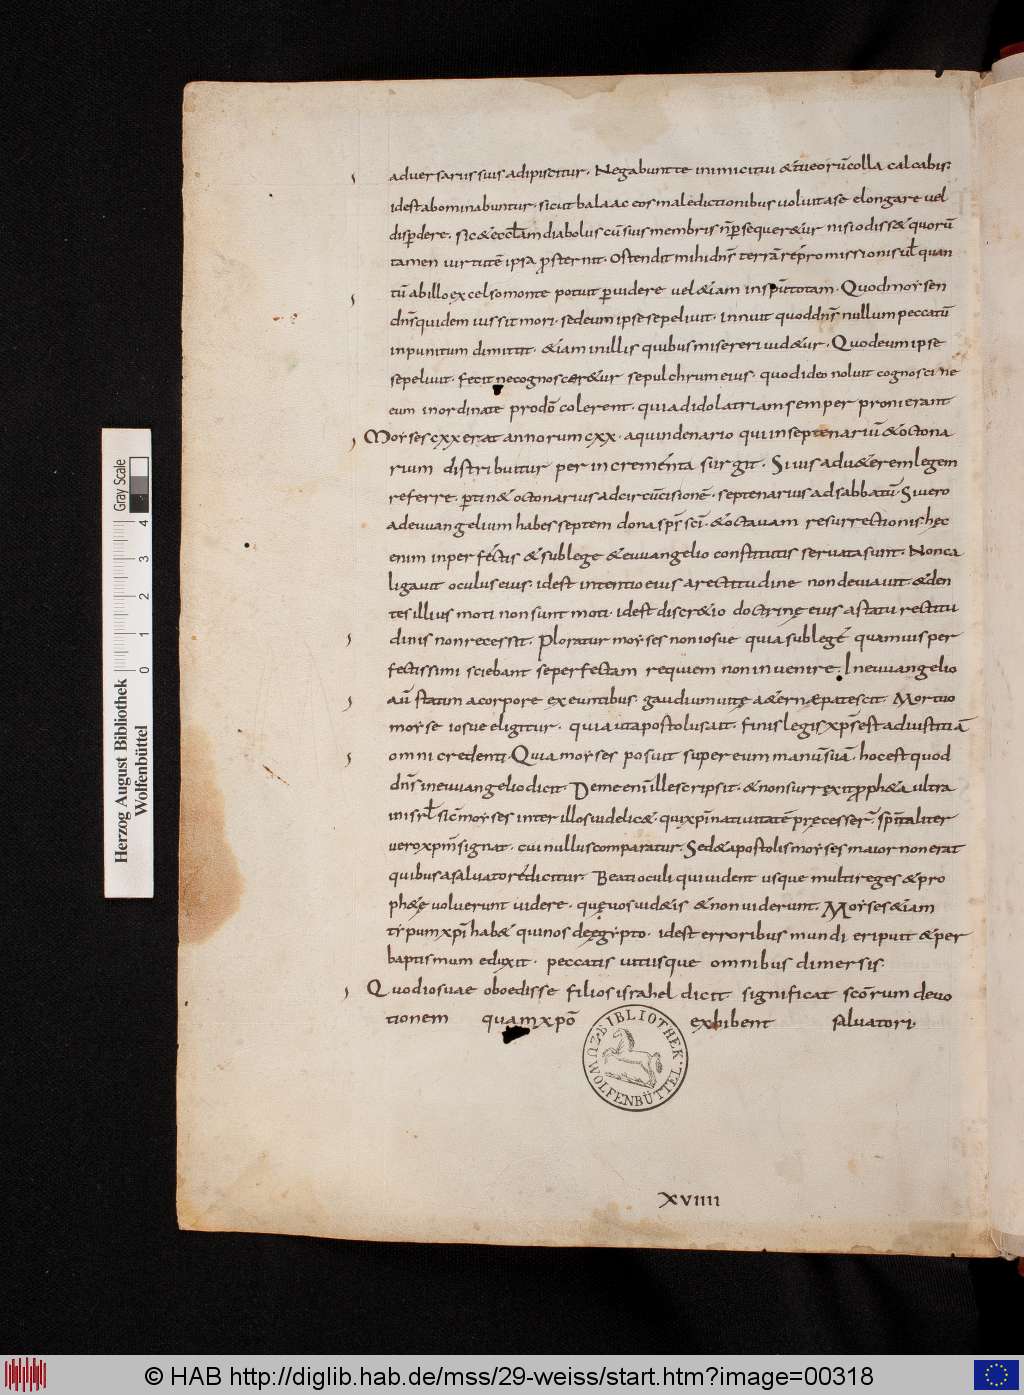 adversariis suis adipiscitur. Negabunt te inimici tui & tu eorū colla calcabis;
id est abominabuntur. sicut balaac eos maledictionibus voluit a se elongare vel
disꝑdere. sic & eccl̄am diabolus cū suis membris n̄ ꝑsequer&ur nisi odiss& quorū
tamen virtutē ipsa prosternit. Ostendit mihi dn̄s terrā repromissionis vl̄ quan
tū ab illo excelso monte potuit ꝑvidere vel &iam in spū totam. Quod moysen
dn̄s quidem iussit mori. sed eum ipse sepelivit. innuit quod dn̄s nullum peccatū
inpunitum dimittit. &iam in illis quibus misereri vid&ur. Quod eum ipse
sepelivit. fecit ne cognoscer&ur sepulchrum eius. quod ideo noluit cognosci ne
eum inordinate pro dō colerent. quia ad idolatriam semper proni erant
Moyses cxx erat annorum cxx. a quindenario qui in septenariū & octona
rium distribuitur per incrementa surgit. Si vis adu&erem legem
referre. ꝑtin& octonarius ad circūcisionē. septenarius ad sabbatū. Si vero
ad euuangelium habes septem dona sp̄s sc̄i. & octavam resurrectionis. hęc
enim in perfectis & sub lege & euuangelio constitutis servata sunt. Non ca
ligavit oculus eius. id est intentio eius a rectitudine non deviavit. & den
tes illius moti non sunt moti. id est discr&io doctrinę eius a statu rectitu
dinis non recessit. Ploratur moyses non iosue quia sub lege quamvis per
fectissimi sciebant se perfectam requiem non invenire. In euuangelio
aū statim a corpore exeuntibus. gaudium vitę a&ernæ patescit. Mortuo
moyse iosue eligitur. quia ut apostolus ait. finis legis xp̄s est ad iustitiā
omni credenti. Quia moyses posuit super eum manū suā. hoc est quod
dn̄s in euuangelio dicit. De me eni ille scripsit. & non surrexit proph&a ultra
in isrl̄ sic̄ moyses inter illos videlic& qui xp̄i nativitatē pręcesser̄. spiritaliter
vero xp̄m signat. cui nullus comparatur. Sed & apostolis moyses maior non erat
quibus a salvatore dicitur. Beati oculi qui vident usque multi reges & pro
ph&ę voluerunt videre. quę vos vid&is & non viderunt. Moyses &iam
typum xp̄i hab& qui nos de ęgypto. id est erroribus mundi eripuit & per
baptismum eduxit. peccatis utiusque omnibus dimersis.
Quod iosuae oboedisse filios israhel dicit significat sc̄orum devo
tionem quam xp̄o exhibent salvatori.
BIBLIOTHEK. WOLFENBÜTTEL. ZU
XVIIII
Herzog August Bibliothek
Wolfenbüttel
Gray Scale
0 1 2 3 4
© HAB http://diglib.hab.de/mss/29-weiss/start.htm?image=00318